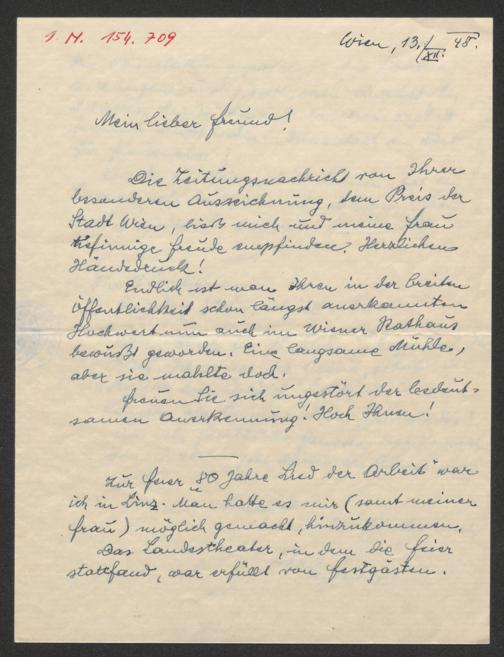 J. N. 154.709
Wien, 13./XII. 48.
Mein lieber Freund!
Die Zeitungsnachricht von Ihrer
besonderen Auszeichnung, dem Preis der
Stadt Wien, ließ mich und meine Frau
tiefinnige Freude empfinden. Herzlichen
Händedruck!
Endlich ist man Ihren in der breiten
Öffentlichkeit schon längst anerkannten
Hochwert nun auch im Wiener Rathaus
bewußt geworden. Eine langsame Mühle,
aber sie mahlte doch.
Freuen Sie sich ungestört der bedeut-
samen Anerkennung! Hoch Ihnen!
Zur Feier "80 Jahre Lied der Arbeit" war
ich in Linz. Man hatte es mir (samt meiner
Frau) möglich gemacht, hinzukommen.
Das Landestheater, in dem die Feier
stattfand, war erfüllt von Festgästen.